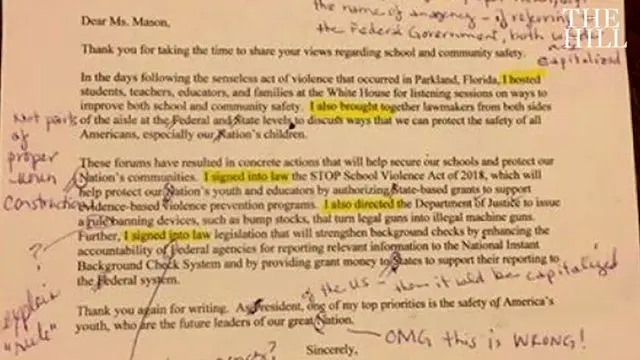 the name of
of referring
THE
HILL
the Federal Government, both
capitalized
Dear Ms. Mason,
Thank you for taking the time to share your views regarding school and community safety.
In the days following the senseless act of violence that occurred in Parkland, Florida, I hosted
students, teachers, educators, and families at the White House for listening sessions on ways to
improve both school and community safety. I also brought together lawmakers from both sides
of the aisle at the Federal and State levels to discuss ways that we can protect the safety of all
Americans, especially our Nation's children.
Not part
of
proper
noun
construction
These forums have resulted in concrete actions that will help secure our schools and protect our
Nation's communities. I signed into law the STOP School Violence Act of 2018, which will
help protect our Nation's youth and educators by authorizing State-based grants to support
evidence-based violence prevention programs. I also directed the Department of Justice to issue
a rule banning devices, such as bump stocks, that turn legal guns into illegal machine guns.
Further, I signed into law legislation that will strengthen background checks by enhancing the
accountability of Federal agencies for reporting relevant information to the National Instant
Background Check System and by providing grant money to States to support their reporting to
the Federal system.
?
explain
"rule"
of the US - then it would be capitalized
Thank you again for writing. As President, one of my top priorities is the safety of America's
youth, who are the future leaders of our great Nation.
OMG this is WRONG!
Sincerely,